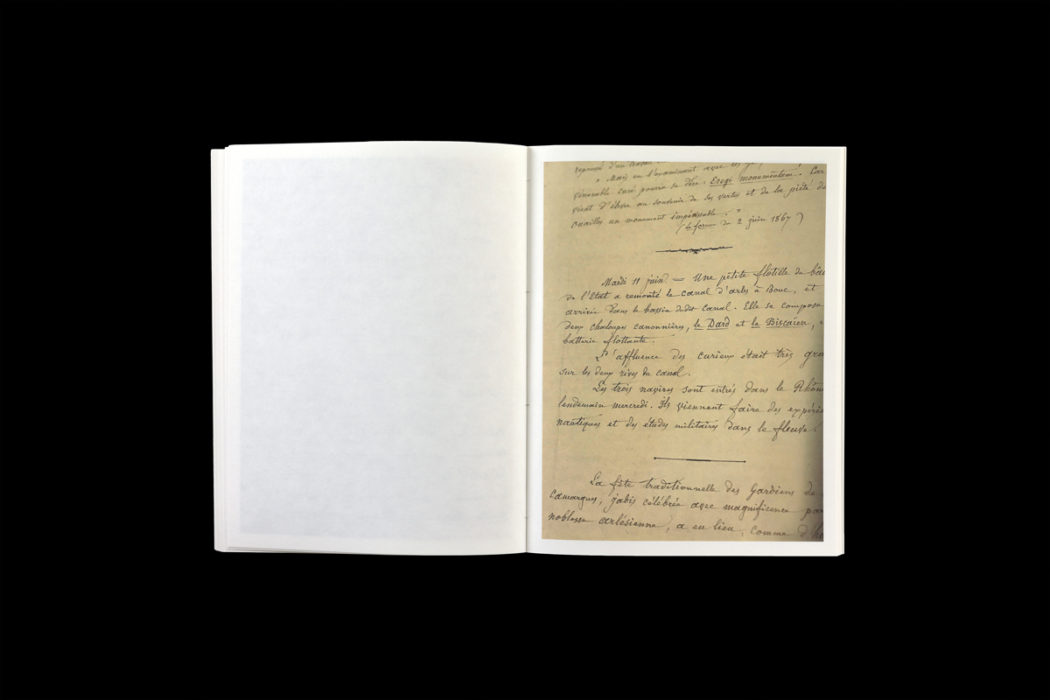 " Mais en
vénérable curé pourra se dire: Exegi monumentum. Car
vient d'élever au souvenir de ses vertus et de la piété de
ouailles un monument impérissable. "
(le forum du 2 juin 1867)
Mardi 11 juin. — Une petite flotille de
de l'Etat a remonté le canal d'arles à Bouc, et
arrivée dans le bassin dudit canal. Elle se compose
deux chaloupes canonnières, le Dard et le Biscaïen,
batterie flottante.
L'affluence des curieux était très
sur les deux rives du canal.
Les trois navires sont entrés dans le Rhône
lendemain mercredi. Ils viennent faire des
nautiques et des études militaires dans le fleuve.
La fête traditionnelle des Gardiens de
Camargue, jadis célébrée avec magnificence par
noblesse arlésienne, a eu lieu, comme